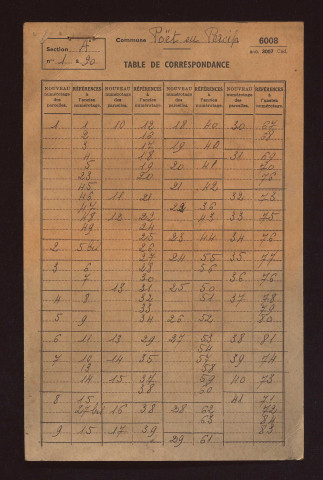 Section A
n° 1 à 90
Commune Poët en Percip
6008
anc. 3007 Cad.
TABLE DE CORRESPONDANCE
NOUVEAU numérotage des parcelles. RÉFÉRENCES à l'ancien numérotage. NOUVEAU numérotage des parcelles. RÉFÉRENCES à l'ancien numérotage. NOUVEAU numérotage des parcelles. RÉFÉRENCES à l'ancien numérotage. NOUVEAU numérotage des parcelles. RÉFÉRENCES à l'ancien numérotage.
1 1 10 12 18 40 30 67
2 13
3 17 19 40
4 18 31 69
5 19 20 41 70
23 20 76
45 21 42
46 11 21 32 73
47 22 36
48 12 22 43 33 75
49 24
25 23 44 34 76
2 26
27 24 55 35 77
3 6 28 56
7 30 36 76
13 31 25 50
4 8 32 51 37 78
33 79
5 9 34 26 52 80
6 11 13 29 27 53 38 81
54
7 10 14 35 57 39 74
13 58
14 15 37 59 40 73
38 60
8 15 41 71
27 bis 16 38 28 62 72
63 84
9 15 17 39 83
29 61